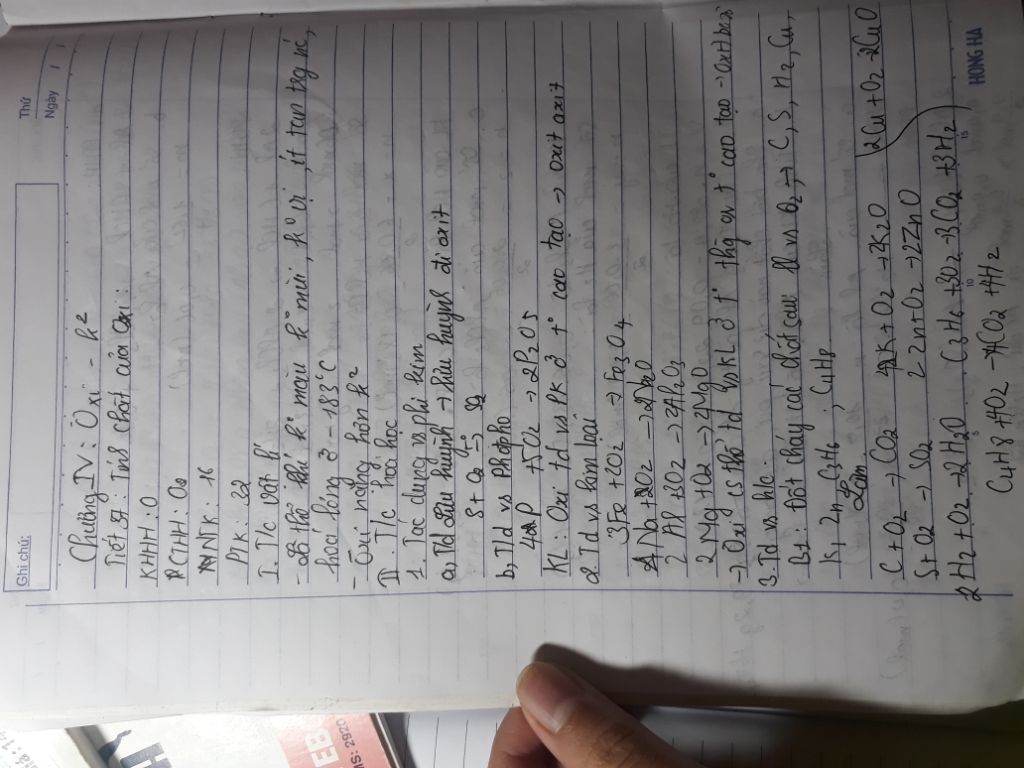 Thứ
Ngày
Ghi chú:
Chương IV: Oxi - k²
Tiết 37: Tính chất của Oxi:
KHHH: O
CTHH: O₂
NTK: 16
PTK: 32
I. T/c vật lí
- Là thể khí kº màu kº mùi, kº vị, ít tan trg nc,
hoá lỏng ở -183°C
- Oxi nặng hơn k²
II. T/c hoá học
1. Tác dụng vs phi kim
a, Td lưu huỳnh → lưu huỳnh đi oxit
S + O₂ → SO₂
b, T/d vs Phôtpho
4P + 5O₂ → 2P₂O₅
KL: Oxi td vs PK ở t° cao tạo → oxit axit
2. Td vs kim loại
3Fe + 2O₂ → Fe₃O₄
2 Mg + O₂ → 2MgO
→ Oxi có thể td vs KL ở t° thg or t° cao tạo → Oxit bazơ
3. Td vs h/c
Bt: Đốt cháy các chất sau đây vs O₂ → C, S, H₂, Cu,
K, Zn, C₃H₆, C₄H₈
Làm
C + O₂ → CO₂ K + O₂ → 2K₂O 2Cu + O₂ → 2CuO
S + O₂ → SO₂ 2Zn + O₂ → 2ZnO
2H₂ + O₂ → 2H₂O
C₄H₈ + O₂ → 4CO₂ + H₂
HONG HA
EB
MS: 2920